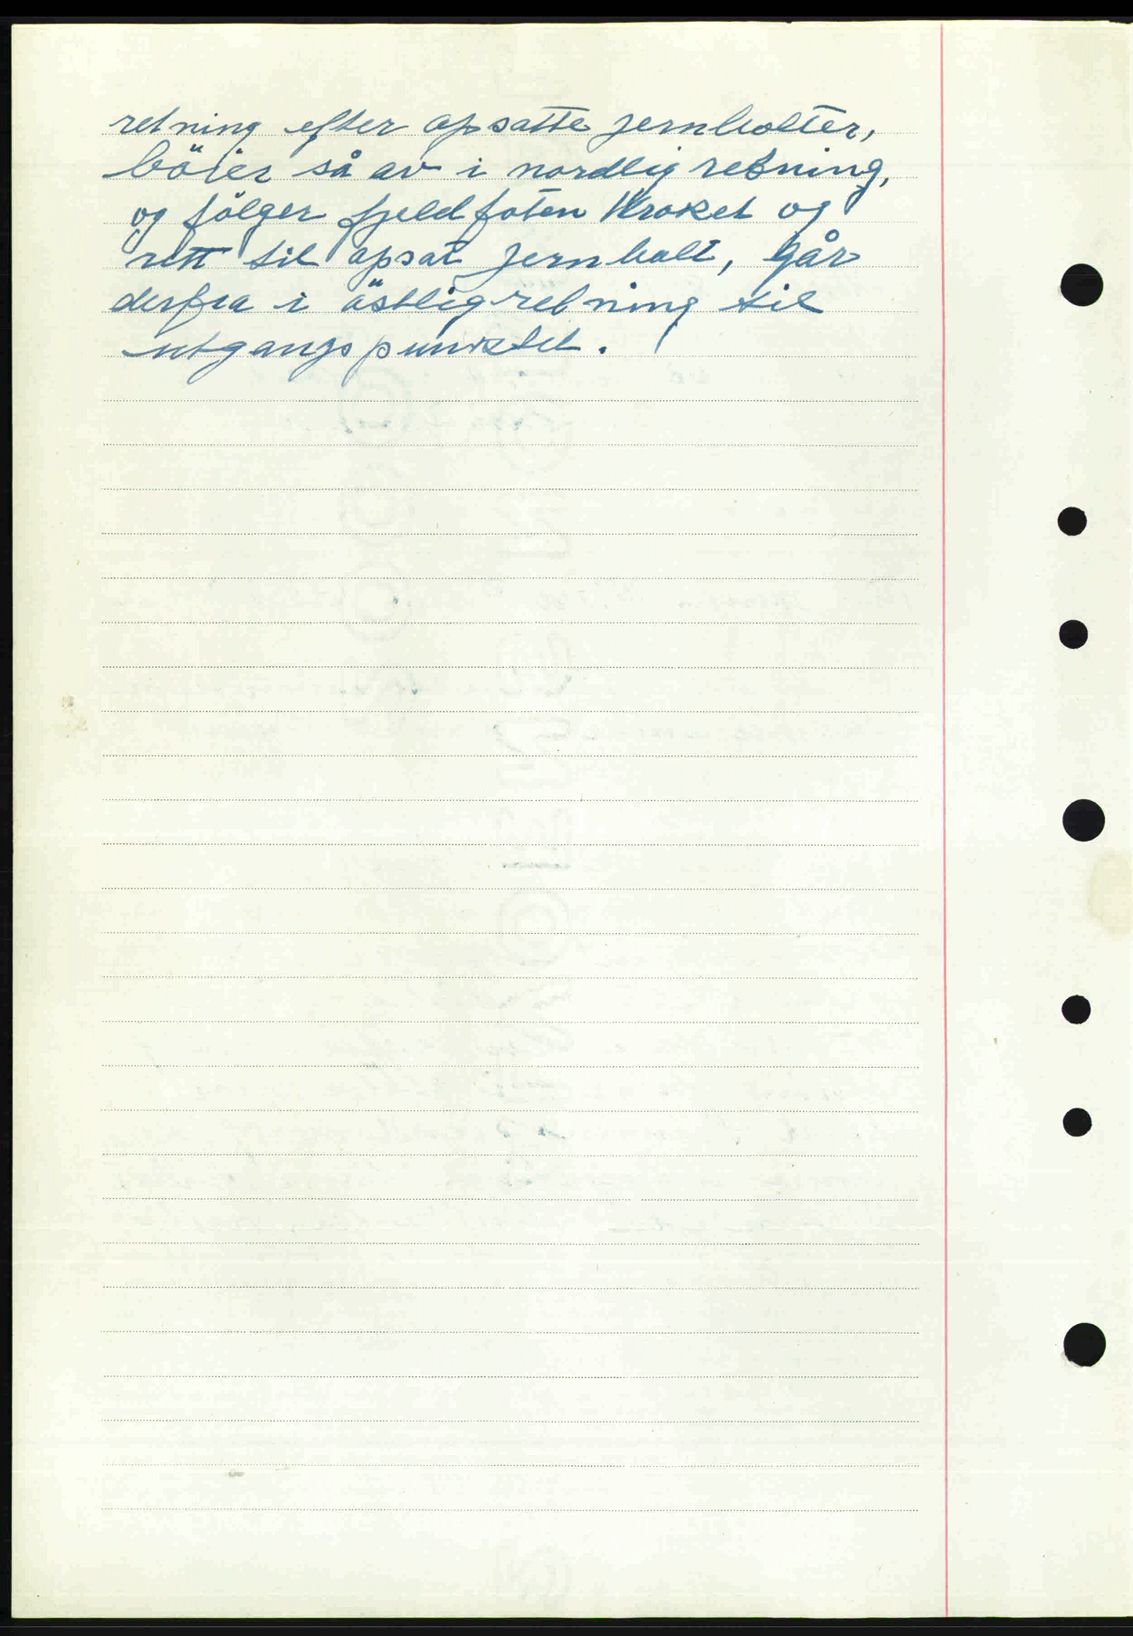 retning efter opsatte jernbolter,
böier så av i nordlig retning,
og fölger fjeldfoten kroket og
rett til opsat jernbolt, går
derfra i östlig retning til
utgangspunktet.